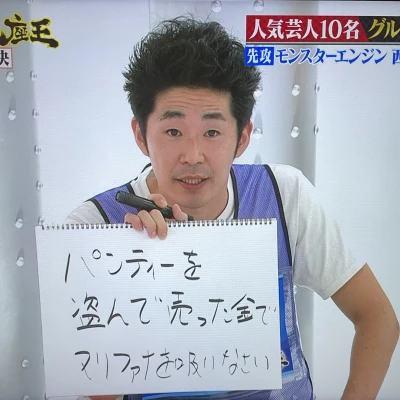 座王
決
人気芸人10名
グル
先攻 モンスターエンジン 西
パンティーを
盗んで売った金で
マリファナを吸いなさい